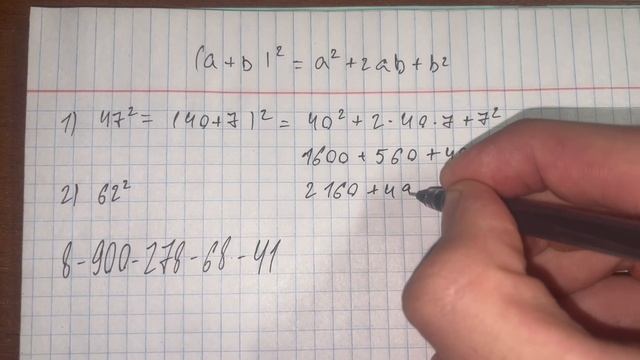 (a+b)² = a²+2ab+b²
1) 47² = (40+7)² = 40²+2·40·7+7²
1600+560+49
2) 62² 2160+49
8-900-278-68-41